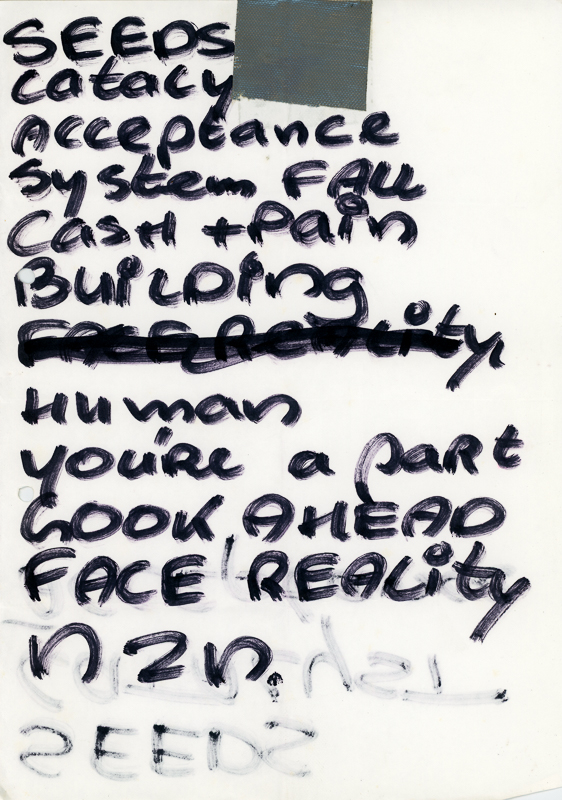 SEEDS
Catacy
Acceptance
System FALL
Cash + Pain
Building
FACE REALity
Human
you're a part
LOOK AHEAD
FACE REALity
nzn.
SEEDS